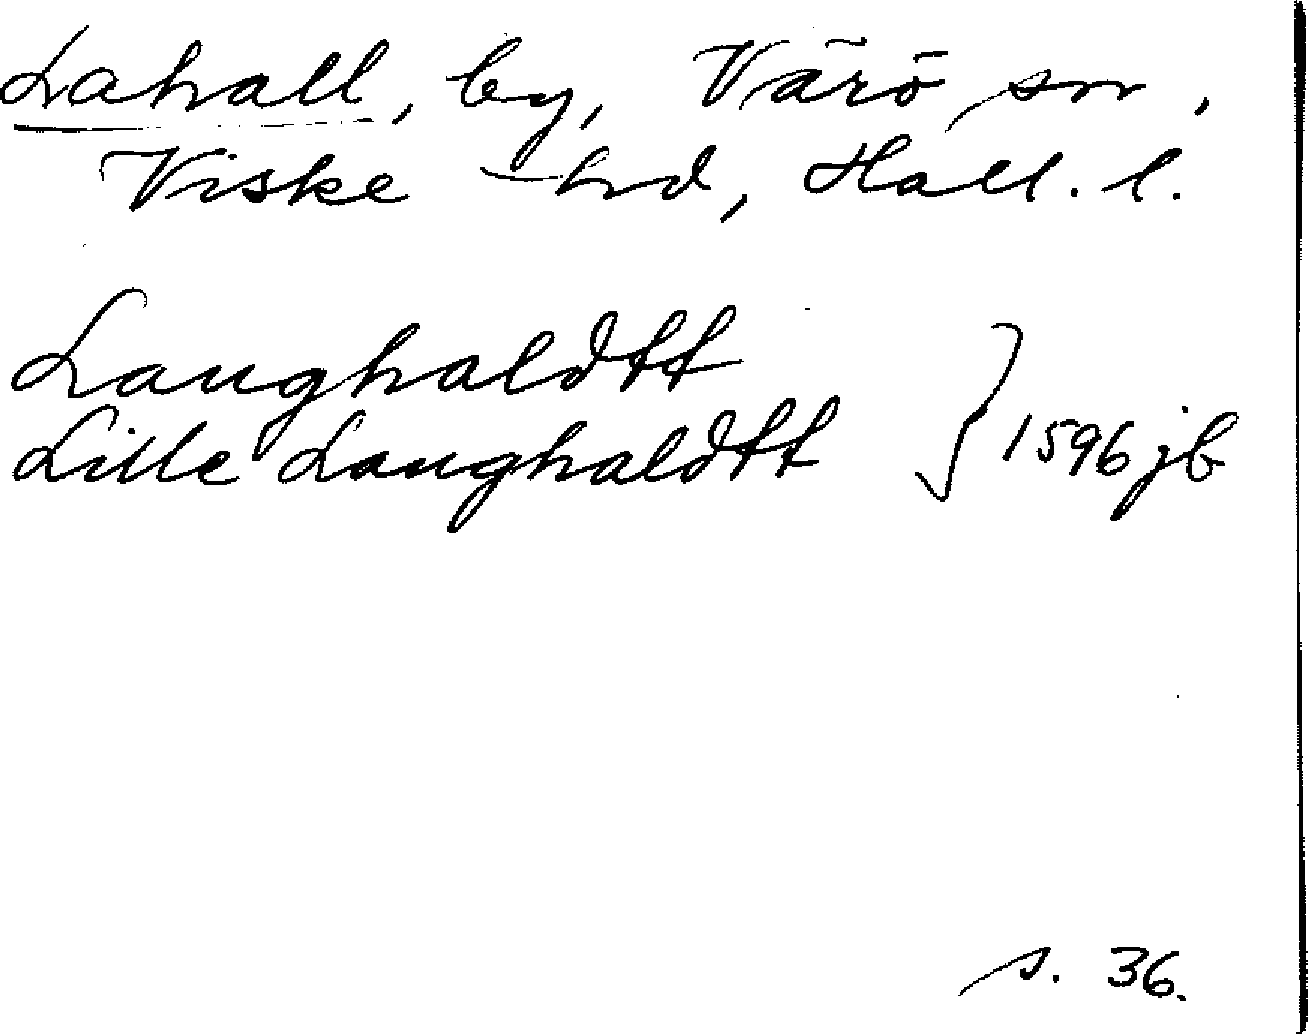 Lahall, by, Värö sn,
Viske hd, Hall. l.
Laughaldtt
Lille Laughaldtt } 1596 jb
s. 36.